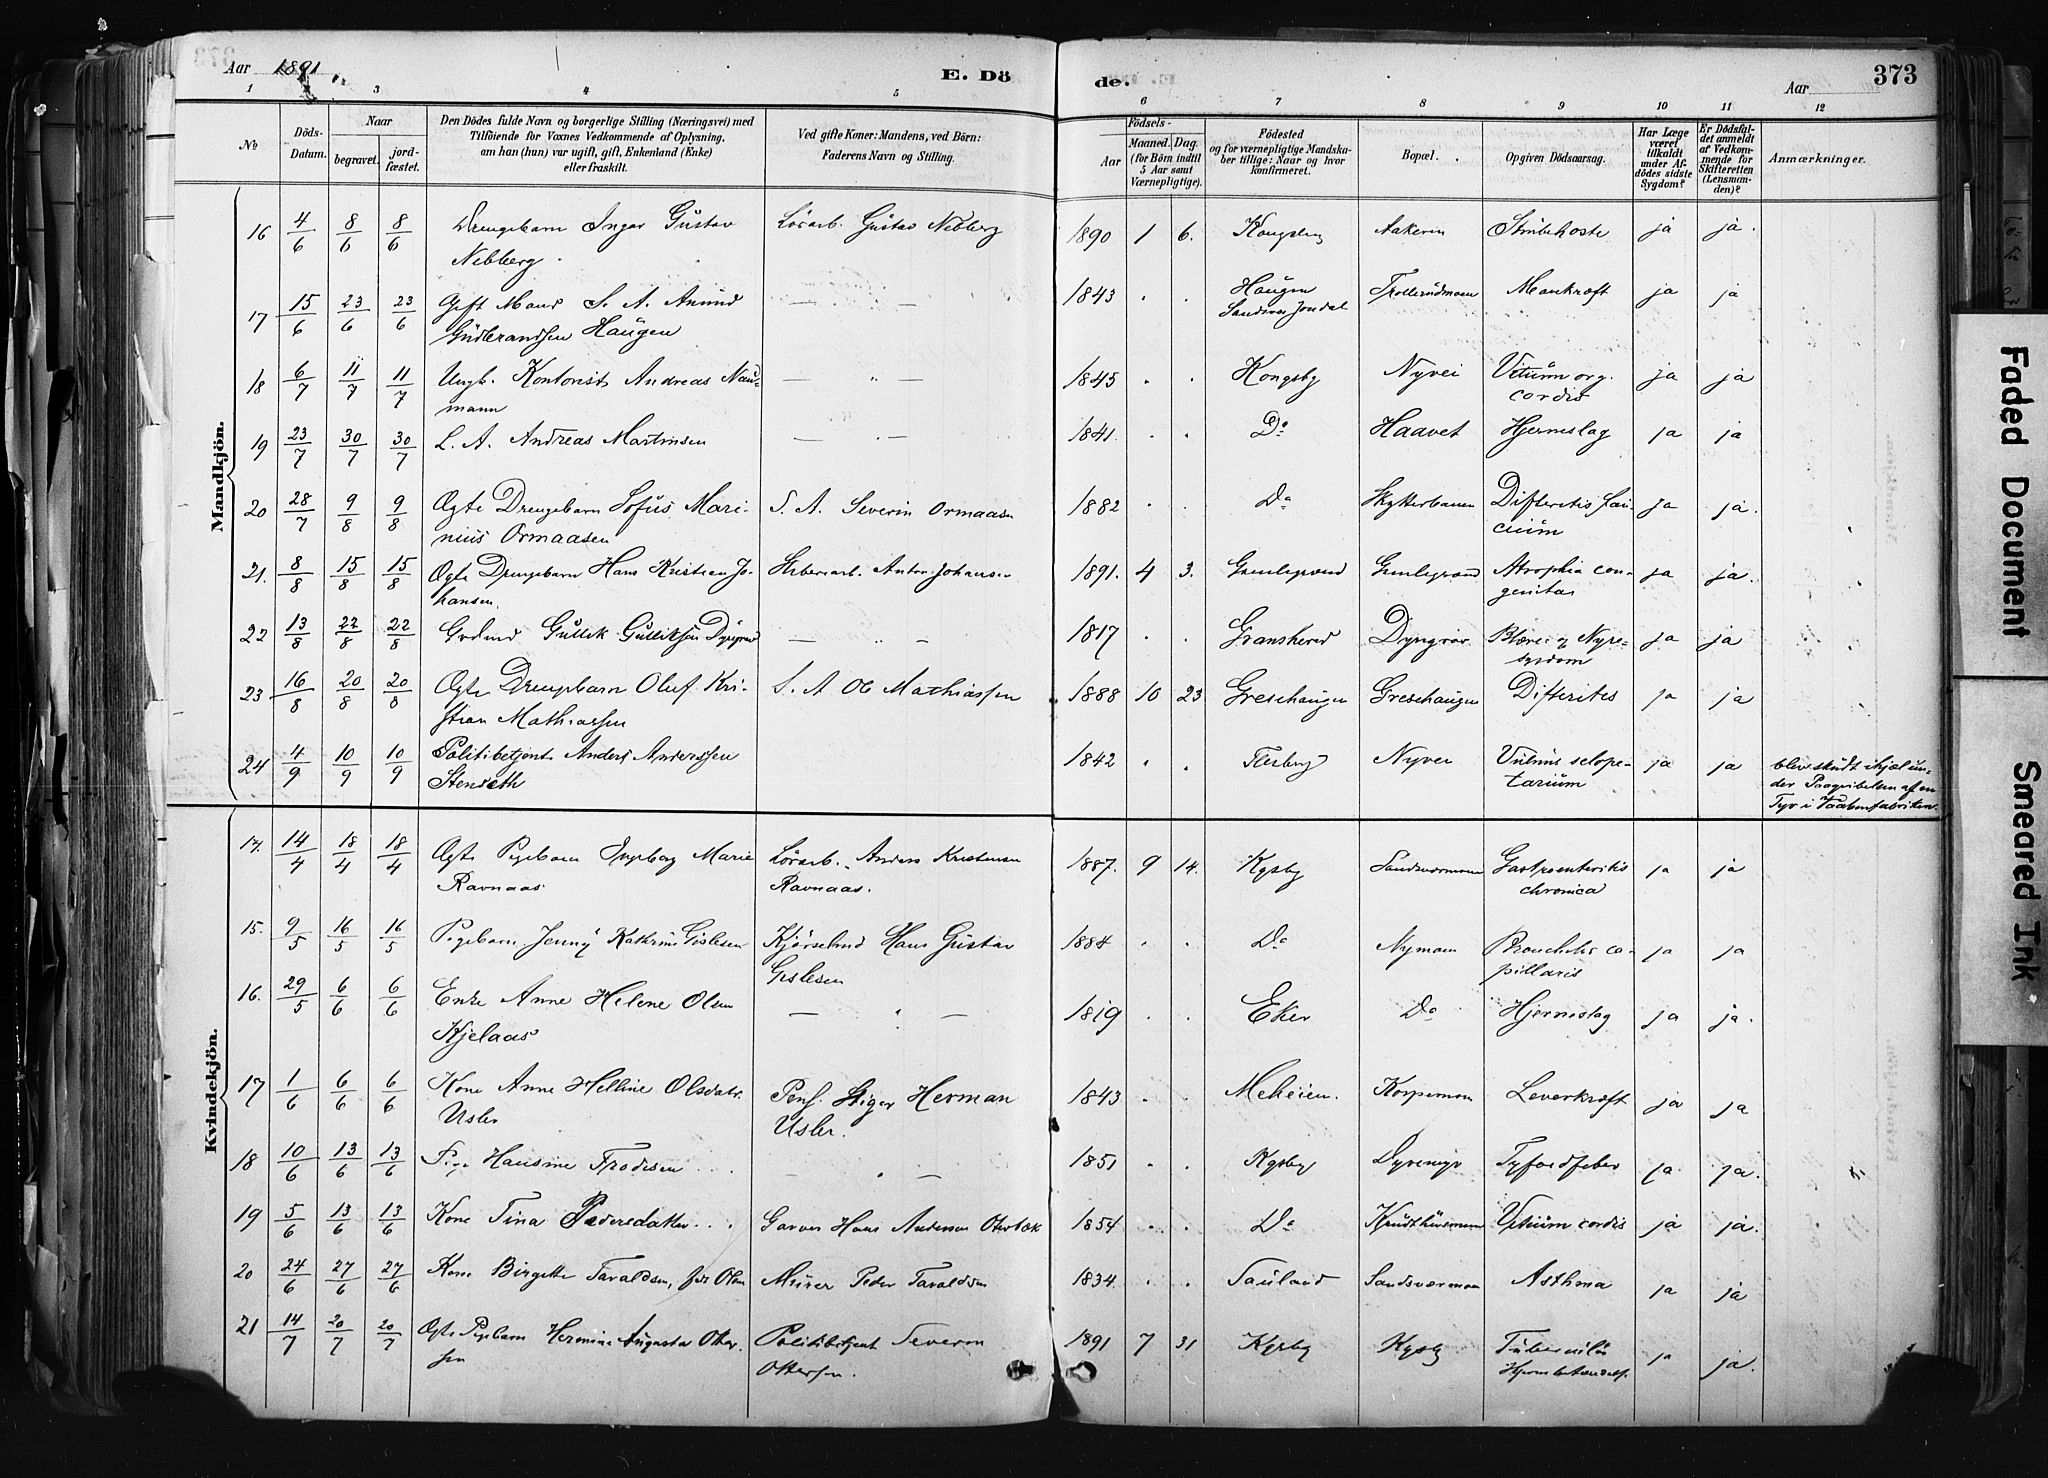 Aar 1891.
E. Dö
de.
Aar
373
1 3 4 5 6 7 8 9 10 11 12
№
Döds-Datum.
Naar
begravet.
jord-fæstet.
Den Dödes fulde Navn og borgerlige Stilling (Næringsvei) med
Tilföiende for Voxnes Vedkommende af Oplysning,
om han (hun) var ugift, gift, Enkemand (Enke)
eller fraskilt.
Ved gifte Koner: Mandens, ved Börn:
Faderens Navn og Stilling.
Födsels-
Aar
Maaned. Dag.
(for Börn indtil
5 Aar samt
Værnepligtige).
Födested
og for værnepligtige Mandska-
ber tillige: Naar og hvor
konfirmeret.
Bopæl.
Opgiven Dödsaarsag.
Har Læge
været
tilkaldt
under Af-
dödes sidste
Sygdom?
Er Dödsfal-
det anmeldt
af Vedkom-
mende for
Skifteretten
(Lensman-
den)?
Anmærkninger.
Mandkjön.
16 4/6 8/6 8/6 Drengebarn Ingar Gustav Lösarb. Gustav Nebberg 1890 1 6. Kongsberg Aakeren Strubehoste ja ja.
Nebberg
17 15/6 23/6 23/6 Gift Mand S. A. Amund — — 1843 Haugen Trollerudmoen Mavekræft ja ja
Gudbrandsen Haugen Sandsvær Jondal
18 6/7 11/7 11/7 Ungk. Kontorist Andreas Nau- — " — 1845 Kongsbg Nyvei Vitium org. ja ja
mann cordis
19 23/7 30/7 30/7 L. A. Andreas Martinsen — — 1841. Do Haavet Hjerneslag ja ja
20 28/7 9/8 9/8 Ægte Drengebarn Sofus Mari- S. A. Severin Ormaasen 1882 Do Skytterbanen Difteritis fau- ja ja.
nius Ormaasen cium
21. 8/8 15/8 15/8 Ægte Drengebarn Hans Kristian Jo- Anton Johansen 1891. 4 3. Gamlegrænd Gamlegrænd Atrophia con- ja ja.
hansen genitas
22 13/8 22/8 22/8 Gullik Gulliksen — " — 1817 Gransherad Dyrgrav Blære- og Nyre- ja ja
sygdom
23 16/8 20/8 20/8 Ægte Drengebarn Oluf Kri- S. A. Ole Mathiassen 1888 10 23 Greschaugen Greschaugen Difterites ja ja
stian Mathiassen
24 4/9 10/9 10/9 Politibetjent Anders Anderssen 1842 Flesberg Nyvei Vulnus sclope- ja ja blev skudt ihjæl un-
Stenseth tarium der Paagribelsen af en
Tyv i Vaabenfabriken.
Kvindekjön.
14. 14/4 18/4 18/4 Ægte Pigebarn Ingeborg Marie Lösarb. Anders Kristensen 1887. 9 14. Kgsbg Sandsværmoen Gastroenteritis ja ja
Ravnaas Ravnaas. chronica
15. 9/5 16/5 16/5 Pigebarn Jenny Kathrine Gislesen Kjörselmd Hans Gustav 1884 Do Nymoen Bronchitis ca- ja ja
Gislesen pillaris
16. 29/5 6/6 6/6 Enke Anne Helene Olsen — " — 1819 Eker Do Hjerneslag ja ja.
Kjelaas
17 1/6 6/6 6/6 Kone Anne Helline Olsdatr. Pens. Stiger Herman 1843 Meheien. Korpemoen Leverkræft ja ja
Usler Usler.
18 10/6 13/6 13/6 Pige Hansine Frodesen — " — 1851 Kgsbg Dyremyr Tyfoidfeber ja ja.
19 5/6 13/6 13/6 Kone Tina Pedersdatter Garver Hans Andersen Otterbæk 1854 Do Krudthusmoen Vitium cordis ja ja.
20 24/6 27/6 27/6 Kone Birgitte Taraldsen, föd Olsen Murer Peder Taraldsen 1834. Sauland Sandsværmoen Asthma ja ja
21 14/7 20/7 20/7 Ægte Pigebarn Hermine Augusta Otter- Politibetjent Severin 1891 7 31 Kgsbg Kgsbg Tuberculös ja ja.
sen Ottersen Hjernebetændels.
Faded Document
Smeared Ink